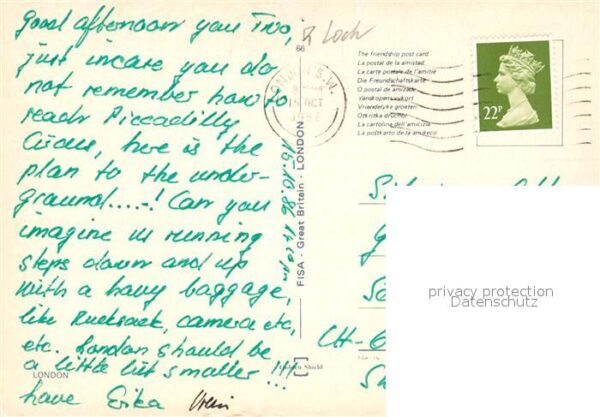 good afternoon you Two,
just incase you do
not remember how to
reach Piccadilly
Circus, here is the
plan to the under-
ground....-! Can you
imagine us running
steps down and up
with a havy baggage,
like Rucksack, camera etc,
etc. London should be
a little bit smaller !!!
have Erika
15.10.86
66
FISA - Great Britain - LONDON
LONDON
The friendship post card
La postal de la amistad
La carte postale de l'amitié
Die Freundschaftskarte
O postal de amizade
Vänskapens vykort
Vriendelyke groeten
La cartolina dell'amicizia
La poŝtkarto de la amikeco
LONDON S.W.
15 OCT
22P
CH-6
privacy protection
Datenschutz